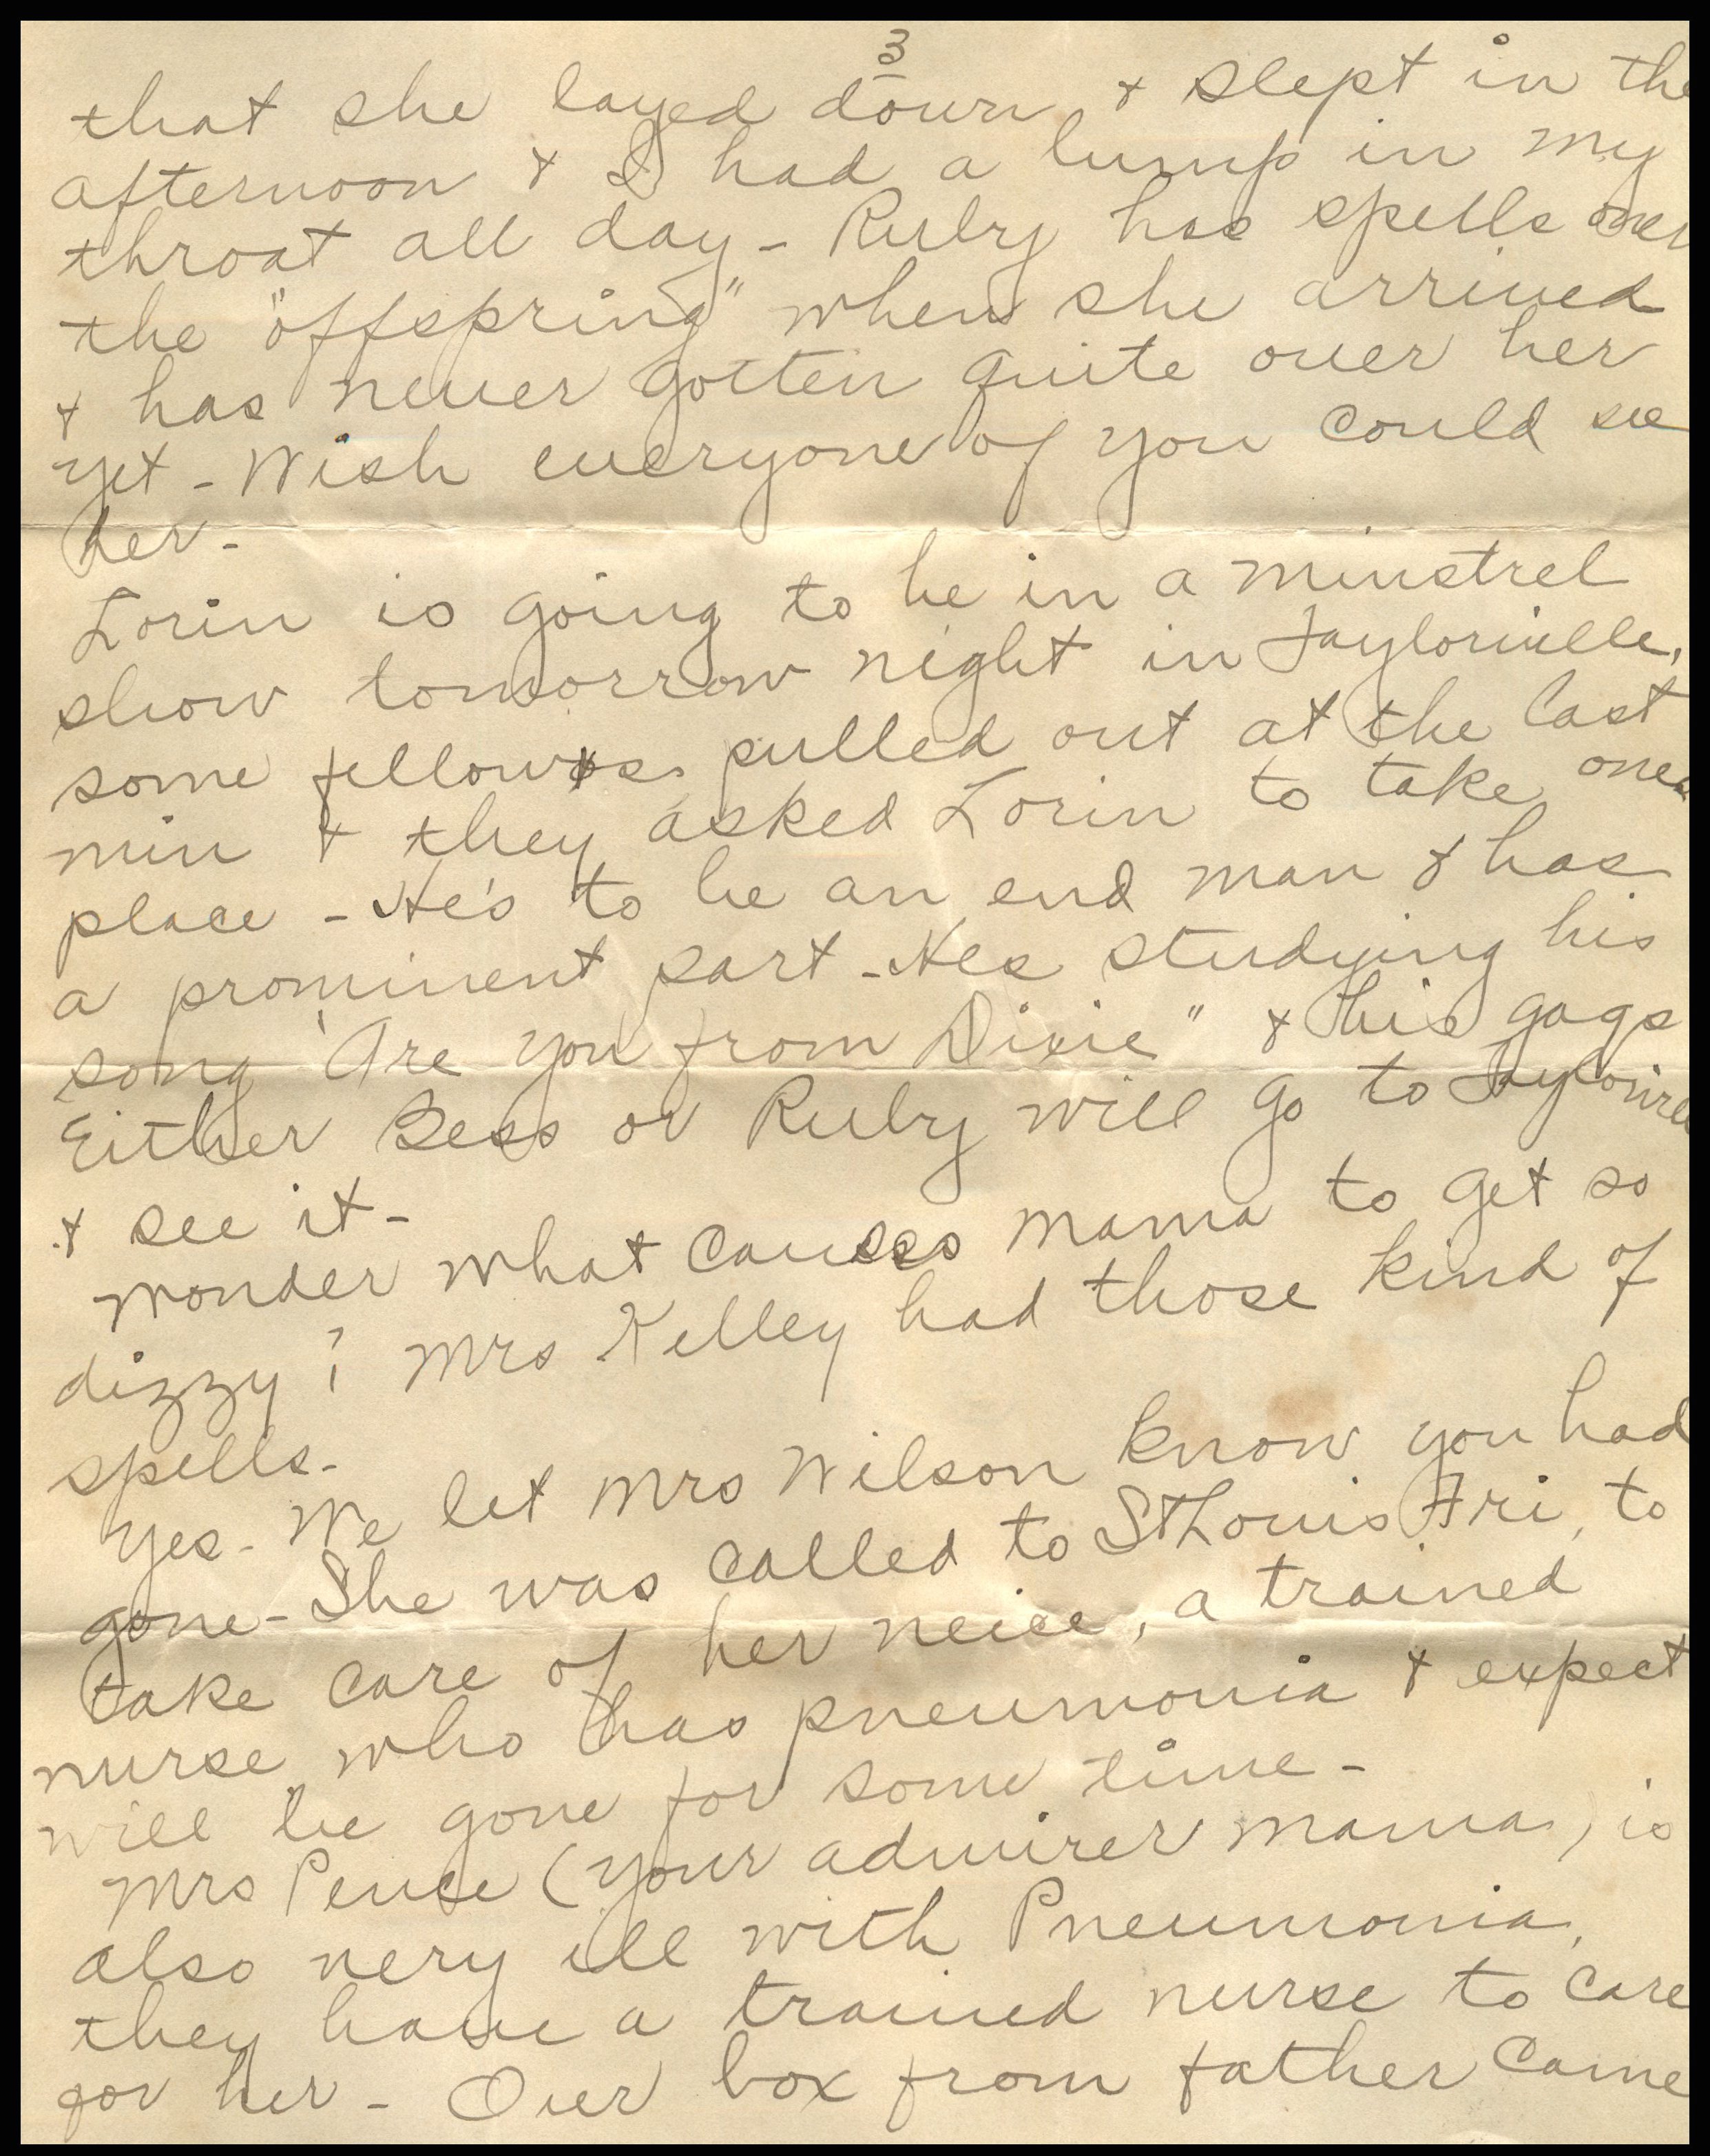 3
that she layed down & slept in the
afternoon & I had a lump in my
throat all day - Ruby has spells over
the "offspring" when she arrived
& has never gotten quite over her
yet - Wish everyone of you could see
her -
Lorin is going to be in a minstrel
show tomorrow night in Taylorville,
some fellows pulled out at the last
min & they asked Lorin to take ones
place - He's to be an end man & has
a prominent part - Hes studying his
song "Are you from Dixie" & his gags
Either Bess or Ruby will go to Taylorville
& see it -
Wonder what causes mama to get so
dizzy? Mrs Kelley had those kind of
spells -
Yes - We let Mrs Wilson know you had
gone - She was called to St Louis Fri, to
take care of her neice, a trained
nurse who has pneumonia & expect
will be gone for some time -
Mrs Pence (your admirer mama) is
also very ill with Pneumonia,
they have a trained nurse to care
for her - Our box from father came